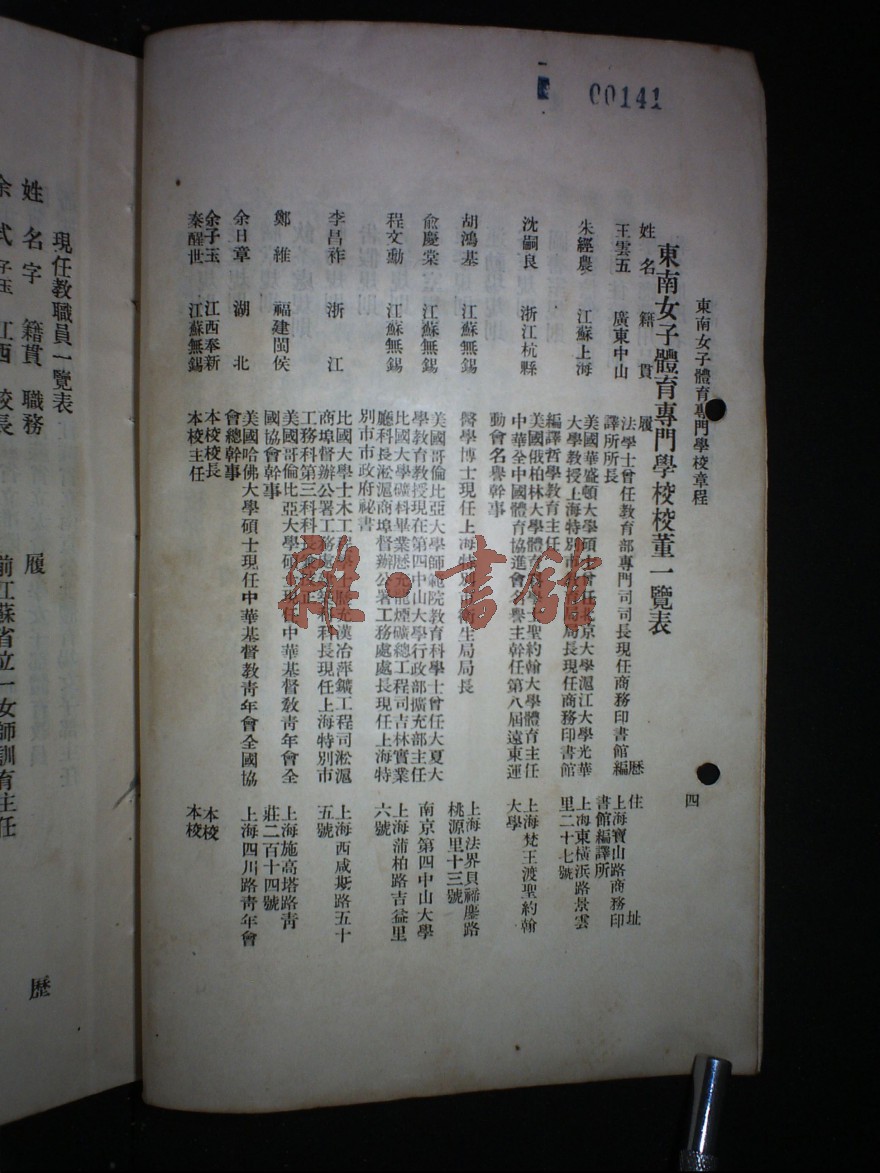 00141
東南女子體育專門學校章程
四
東南女子體育專門學校校董一覽表
姓名 籍貫 履歷 住址
王雲五 廣東中山 法學士曾任教育部專門司司長現任商務印書館編 上海寶山路商務印
譯所所長 書館編譯所
朱經農 江蘇上海 美國華盛頓大學碩士曾任北京大學滬江大學光華 上海東橫浜路景雲
大學教授上海特別市 局局長現任商務印書館 里二十七號
編譯哲學教育主任
沈嗣良 浙江杭縣 美國俄柏林大學體育科學士聖約翰大學體育主任 上海梵王渡聖約翰
中華全中國體育協進會名譽主幹任第八屆遠東運 大學
動會名譽幹事
胡鴻基 江蘇無錫 醫學博士現任上海特別市衛生局局長 上海法界貝禘鏖路
桃源里十三號
俞慶棠 江蘇無錫 美國哥倫比亞大學師範院教育科學士曾任大夏大 南京第四中山大學
學教育教授現在第四中山大學行政部擴充部主任
程文勳 江蘇無錫 比國大學礦科畢業歷充 煙礦總工程司吉林實業 上海蒲柏路吉益里
廳科長淞滬商埠督辦公署工務處處長現任上海特 六號
別市市政府祕書
李昌祚 浙江 比國大學士木工程 漢冶萍鑛工程司淞滬 上海西咸斯路五十
商埠督辦公署工務處 科長現任上海特別市 五號
工務科第三科科長
鄭維 福建閩侯 美國哥倫比亞大學碩 現任中華基督教靑年會全 上海施高塔路靑
國協會幹事 莊二百十四號
余日章 湖北 美國哈佛大學碩士現任中華基督教靑年會全國協 上海四川路靑年會
會總幹事
余子玉 江西奉新 本校校長 本校
秦醒世 江蘇無錫 本校主任 本校
現任教職員一覽表
姓名 字 籍貫 職務 履歷
余式 子玉 江西 校長 前江蘇省立一女師訓育主任
雜·書館